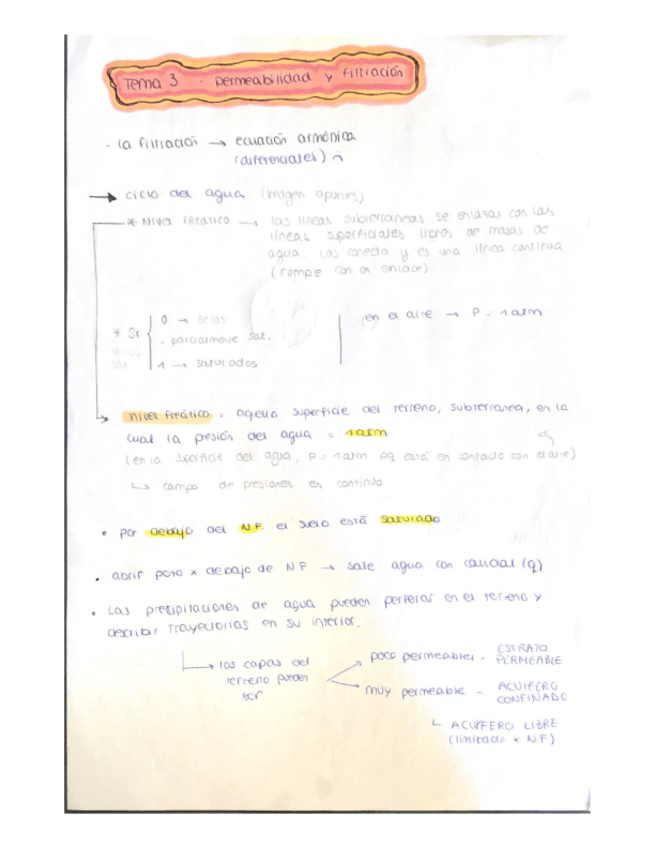 Tema 3 - Permeabilidad y Filtración
- La Filtración → ecuación armónica
(diferenciales)
→ ciclo del agua (imagen apuntes)
* NIVEL FREÁTICO → las líneas subterráneas se enlazan con las
líneas superficiales libres de masas de
agua. Las conecta y es una línea continua
(rompe con en enlace)
0 → secos
en el aire → P = 1 atm
* Sr
- parcialmente sat.
1 → saturados
Nivel freático = aquella superficie del terreno, subterránea, en la
cual la presión del agua = 1 atm
(en la superficie del agua, P = 1 atm pq está en contacto con el aire)
↳ campo de presiones es continuo
• por debajo del N.F. el suelo está saturado
• abrir pozo x debajo de N.F → sale agua con caudal (q)
• Las precipitaciones de agua pueden en el terreno y
describir trayectorias en su interior.
→ las capas del
terreno pueden
ser
poco permeables - ESTRATO
PERMEABLE
muy permeable - ACUIFERO
CONFINADO
↳ ACUIFERO LIBRE
(limitado x N.F)